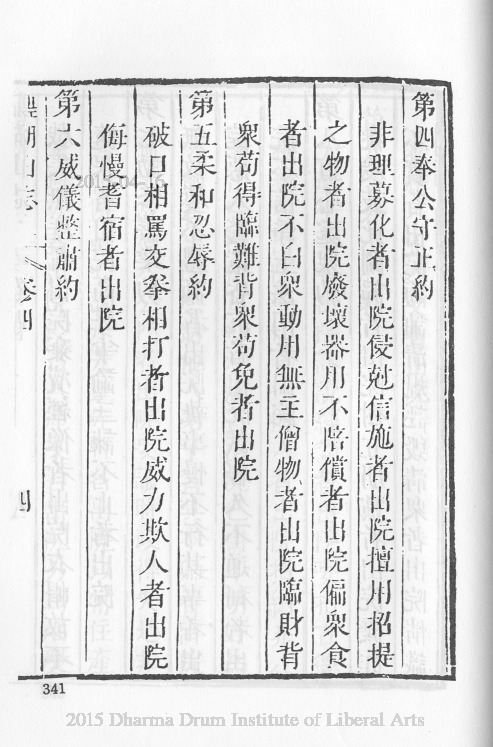 第四奉公守正約
非理募化者出院侵尅信施者出院擅用招提
之物者出院廢壞器用不陪償者出院偏衆食
者出院不白衆動用無主僧物者出院臨財背
衆苟得臨難背衆苟免者出院
第五柔和忍辱約
破口相罵交拳相打者出院威力欺人者出院
侮慢耆宿者出院
第六威儀整肅約
志 卷四 四
341
2015 Dharma Drum Institute of Liberal Arts